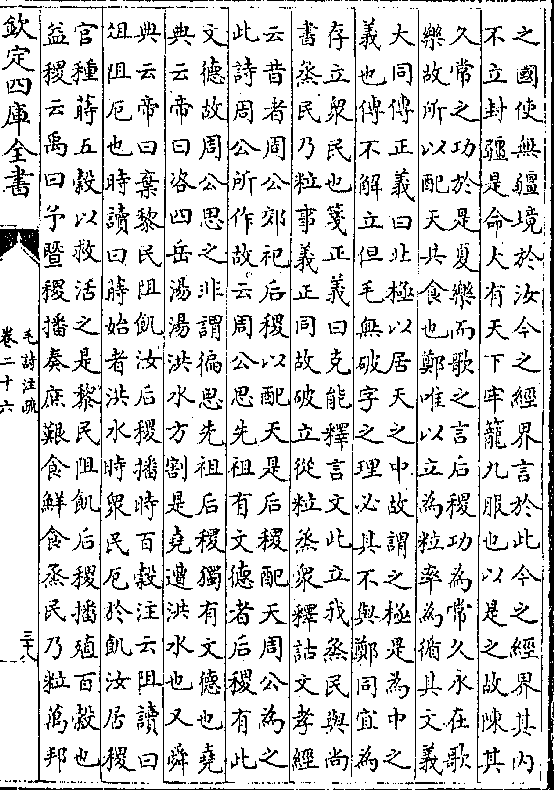 之國使無疆境於汝今之經界言於此今之經界其内
不立封疆是命大有天下牢籠九服也以是之故陳其
久常之功於是夏樂而歌之言后稷功為常久永在歌
樂故所以配天共食也鄭唯以立為粒率為循其文義
大同傳正義曰北極以居天之中故謂之極是為中之
義也傳不解立但毛無破字之理必其不與鄭同宜為
存立衆民也箋正義曰克能釋言文此立我烝民與尚
書烝民乃粒事義正同故破立從粒烝衆釋詁文孝經
云昔者周公郊祀后稷以配天是后稷配天周公為之
此詩周公所作故云周公思先祖有文德者后稷有此
文德故周公思之非謂徧思先祖后稷獨有文德也堯
典云帝曰咨四岳湯湯洪水方割是堯遭洪水也又舜
典云帝曰棄黎民阻飢汝后稷播時百穀注云阻讀曰
俎阻厄也時讀曰蒔始者洪水時衆民厄於飢汝居稷
官種蒔五穀以救活之是黎民阻飢后稷播殖百穀也
益稷云禹曰予曁稷播奏庶艱食鮮食烝民乃粒萬邦
欽定四庫全書
毛詩注疏
卷二十六
三十八